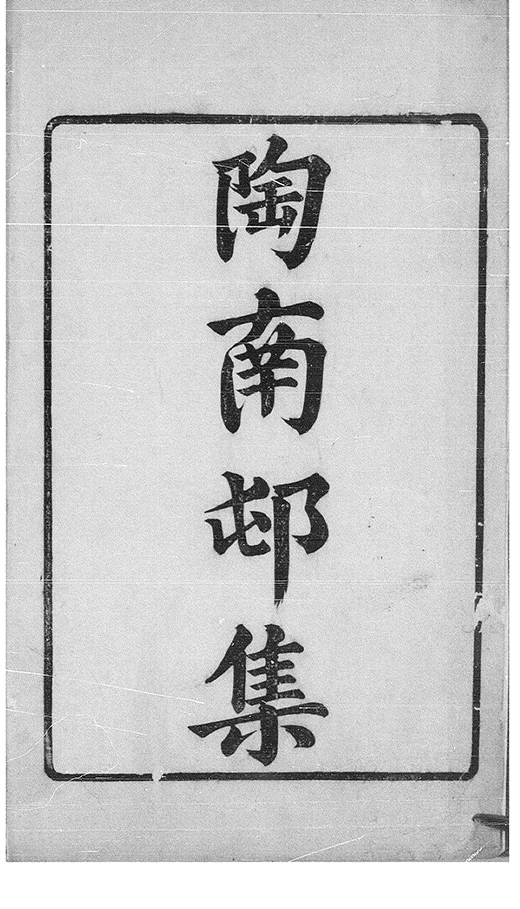 陶南邨集